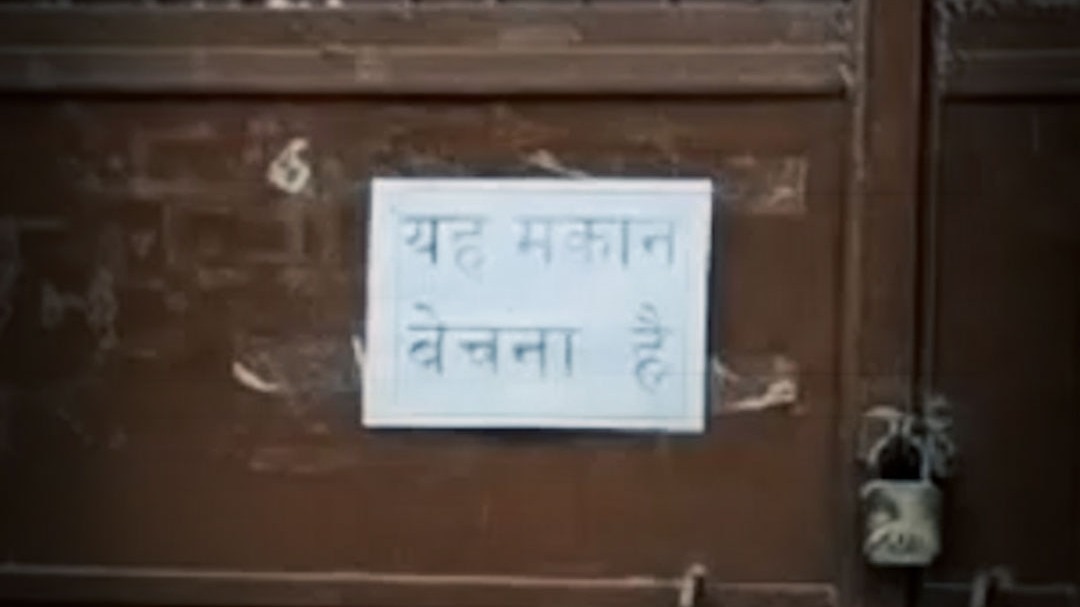 यह मकान
बेचना है